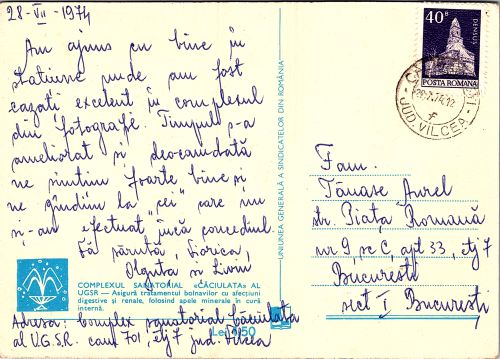 28-VII-1974
Am ajuns cu bine în
stațiune unde am fost
cazați excelent în complexul
din fotografie. Timpul s-a
ameliorat și deocamdată
ne simțim foarte bine și
ne gîndim la "cei" care nu
și-au efectuat încă concediul.
Vă sărută, Viorica,
Olguța și Liviu
COMPLEXUL SANATORIAL «CĂCIULATA» AL
UGSR — Asigură tratamentul bolnavilor cu afecțiuni
digestive și renale, folosind apele minerale în cură
internă.
Lei 1,50
Adresa: Complex sanatorial Căciulata
al U.G.S.R. cam 701, etj 7 jud. Vîlcea
UNIUNEA GENERALĂ A SINDICATELOR DIN ROMÂNIA
40 B
DENSUȘ
POSTA ROMANA
JUD. VÎLCEA
Fam.
Tănase Aurel
str. Piața Romană
nr 9, sc C, apt 33, etj 7
București
sect I București